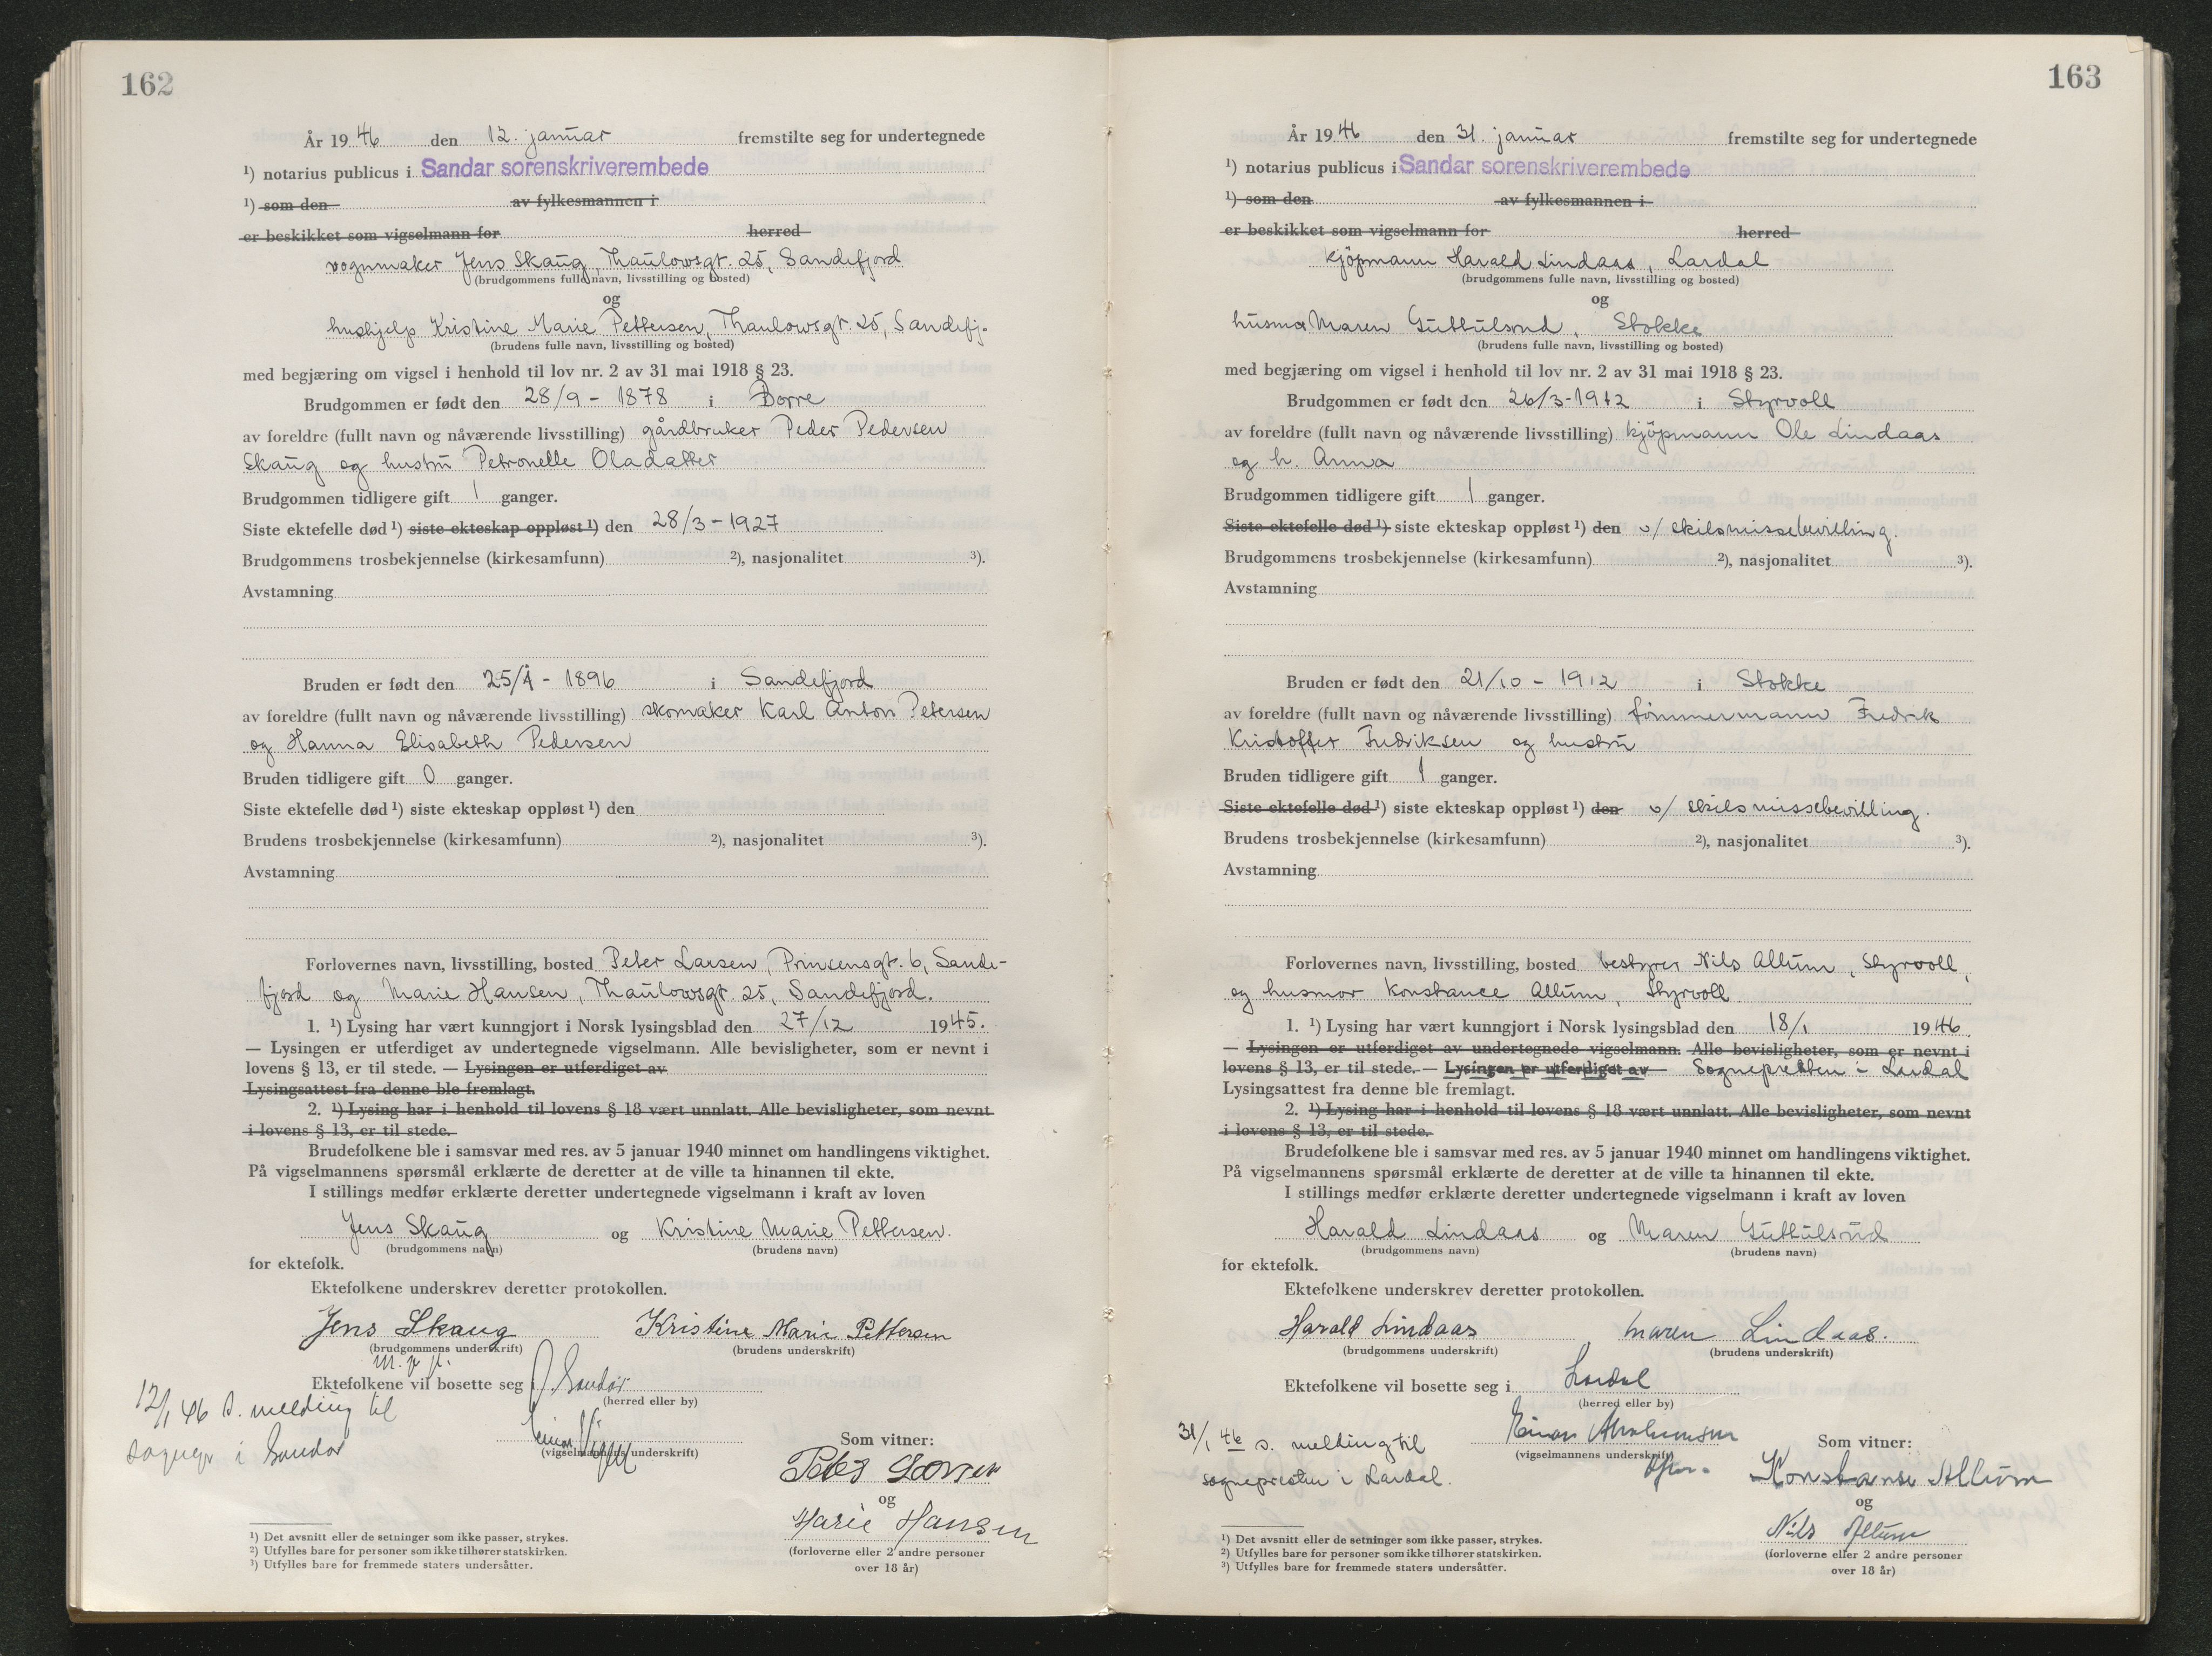 162
År 1946 den 12. januar fremstilte seg for undertegnede
¹) notarius publicus i Sandar sorenskriverembede
¹) som den av fylkesmannen i
er beskikket som vigselmann for herred
vognmaker Jens Skaug, Thaulowsgt. 25, Sandefjord
(brudgommens fulle navn, livsstilling og bosted)
og
hushjelp Kristine Marie Pettersen, Thaulowsgt. 25, Sandefj.
(brudens fulle navn, livsstilling og bosted)
med begjæring om vigsel i henhold til lov nr. 2 av 31 mai 1918 § 23.
Brudgommen er født den 28/9 - 1878 i Borre
av foreldre (fullt navn og nåværende livsstilling) gårdbruker Peder Pedersen
Skaug og hustru Petronelle Oladatter
Brudgommen tidligere gift 1 ganger.
Siste ektefelle død ¹) siste ekteskap oppløst ¹) den 28/3 - 1927
Brudgommens trosbekjennelse (kirkesamfunn) ²), nasjonalitet ³).
Avstamning
Bruden er født den 25/4 - 1896 i Sandefjord
av foreldre (fullt navn og nåværende livsstilling) skomaker Karl Anton Petersen
og Hanna Elisabeth Pedersen
Bruden tidligere gift 0 ganger.
Siste ektefelle død ¹) siste ekteskap oppløst ¹) den
Brudens trosbekjennelse (kirkesamfunn) ²), nasjonalitet ³).
Avstamning
Forlovernes navn, livsstilling, bosted Peter Larsen, Prinsensgt. 6, Sande-
fjord og Marie Hansen, Thaulowsgt. 25, Sandefjord.
1. ¹) Lysing har vært kunngjort i Norsk lysingsblad den 27/12 1945.
— Lysingen er utferdiget av undertegnede vigselmann. Alle bevisligheter, som er nevnt i
lovens § 13, er til stede. — Lysingen er utferdiget av
Lysingsattest fra denne ble fremlagt.
2. ¹) Lysing har i henhold til lovens § 18 vært unnlatt. Alle bevisligheter, som nevnt
i lovens § 13, er til stede.
Brudefolkene ble i samsvar med res. av 5 januar 1940 minnet om handlingens viktighet.
På vigselmannens spørsmål erklærte de deretter at de ville ta hinannen til ekte.
I stillings medfør erklærte deretter undertegnede vigselmann i kraft av loven
Jens Skaug og Kristine Marie Pettersen.
(brudgommens navn) (brudens navn)
for ektefolk.
Ektefolkene underskrev deretter protokollen.
Jens Skaug Kristine Marie Pettersen
(brudgommens underskrift) (brudens underskrift)
m. p. p.
Ektefolkene vil bosette seg i Sandar
(herred eller by)
12/1 46 s. melding til
sognepr i Sandar
(vigselmannens underskrift)
Som vitner:
Peter Larsen
og
Marie Hansen
(forloverne eller 2 andre personer
over 18 år)
¹) Det avsnitt eller de setninger som ikke passer, strykes.
²) Utfylles bare for personer som ikke tilhører statskirken.
³) Utfylles bare for fremmede staters undersåtter.
163
År 1946 den 31. januar fremstilte seg for undertegnede
¹) notarius publicus i Sandar sorenskriverembede
¹) som den av fylkesmannen i
er beskikket som vigselmann for herred
kjöpmann Harald Lindaas, Lardal
(brudgommens fulle navn, livsstilling og bosted)
og
husmor Maren Guttulsrud, Stokke
(brudens fulle navn, livsstilling og bosted)
med begjæring om vigsel i henhold til lov nr. 2 av 31 mai 1918 § 23.
Brudgommen er født den 26/3 - 1912 i Styrvoll
av foreldre (fullt navn og nåværende livsstilling) kjöpmann Ole Lindaas
og h. Anna
Brudgommen tidligere gift 1 ganger.
Siste ektefelle død ¹) siste ekteskap oppløst ¹) den v/ skilsmissebevilling.
Brudgommens trosbekjennelse (kirkesamfunn) ²), nasjonalitet ³).
Avstamning
Bruden er født den 21/10 - 1912 i Stokke
av foreldre (fullt navn og nåværende livsstilling) tömmermann Fredrik
Kristoffer Fredriksen og hustru
Bruden tidligere gift 1 ganger.
Siste ektefelle død ¹) siste ekteskap oppløst ¹) den v/ skilsmissebevilling.
Brudens trosbekjennelse (kirkesamfunn) ²), nasjonalitet ³).
Avstamning
Forlovernes navn, livsstilling, bosted bestyrer Nils Allum, Styrvoll,
og husmor Konstance Allum, Styrvoll
1. ¹) Lysing har vært kunngjort i Norsk lysingsblad den 18/1 1946
— Lysingen er utferdiget av undertegnede vigselmann. Alle bevisligheter, som er nevnt i
lovens § 13, er til stede. — Lysingen er utferdiget av — Sognepresten i Lardal
Lysingsattest fra denne ble fremlagt.
2. ¹) Lysing har i henhold til lovens § 18 vært unnlatt. Alle bevisligheter, som nevnt
i lovens § 13, er til stede.
Brudefolkene ble i samsvar med res. av 5 januar 1940 minnet om handlingens viktighet.
På vigselmannens spørsmål erklærte de deretter at de ville ta hinannen til ekte.
I stillings medfør erklærte deretter undertegnede vigselmann i kraft av loven
Harald Lindaas og Maren Guttulsrud
(brudgommens navn) (brudens navn)
for ektefolk.
Ektefolkene underskrev deretter protokollen.
Harald Lindaas Maren Lindaas.
(brudgommens underskrift) (brudens underskrift)
Ektefolkene vil bosette seg i Lardal
(herred eller by)
31/1 46 s. melding til
sognepresten i Lardal.
Einar Abrahamsen
(vigselmannens underskrift)
Som vitner:
Konstanse Allum
og
Nils Allum
(forloverne eller 2 andre personer
over 18 år)
¹) Det avsnitt eller de setninger som ikke passer, strykes.
²) Utfylles bare for personer som ikke tilhører statskirken.
³) Utfylles bare for fremmede staters undersåtter.